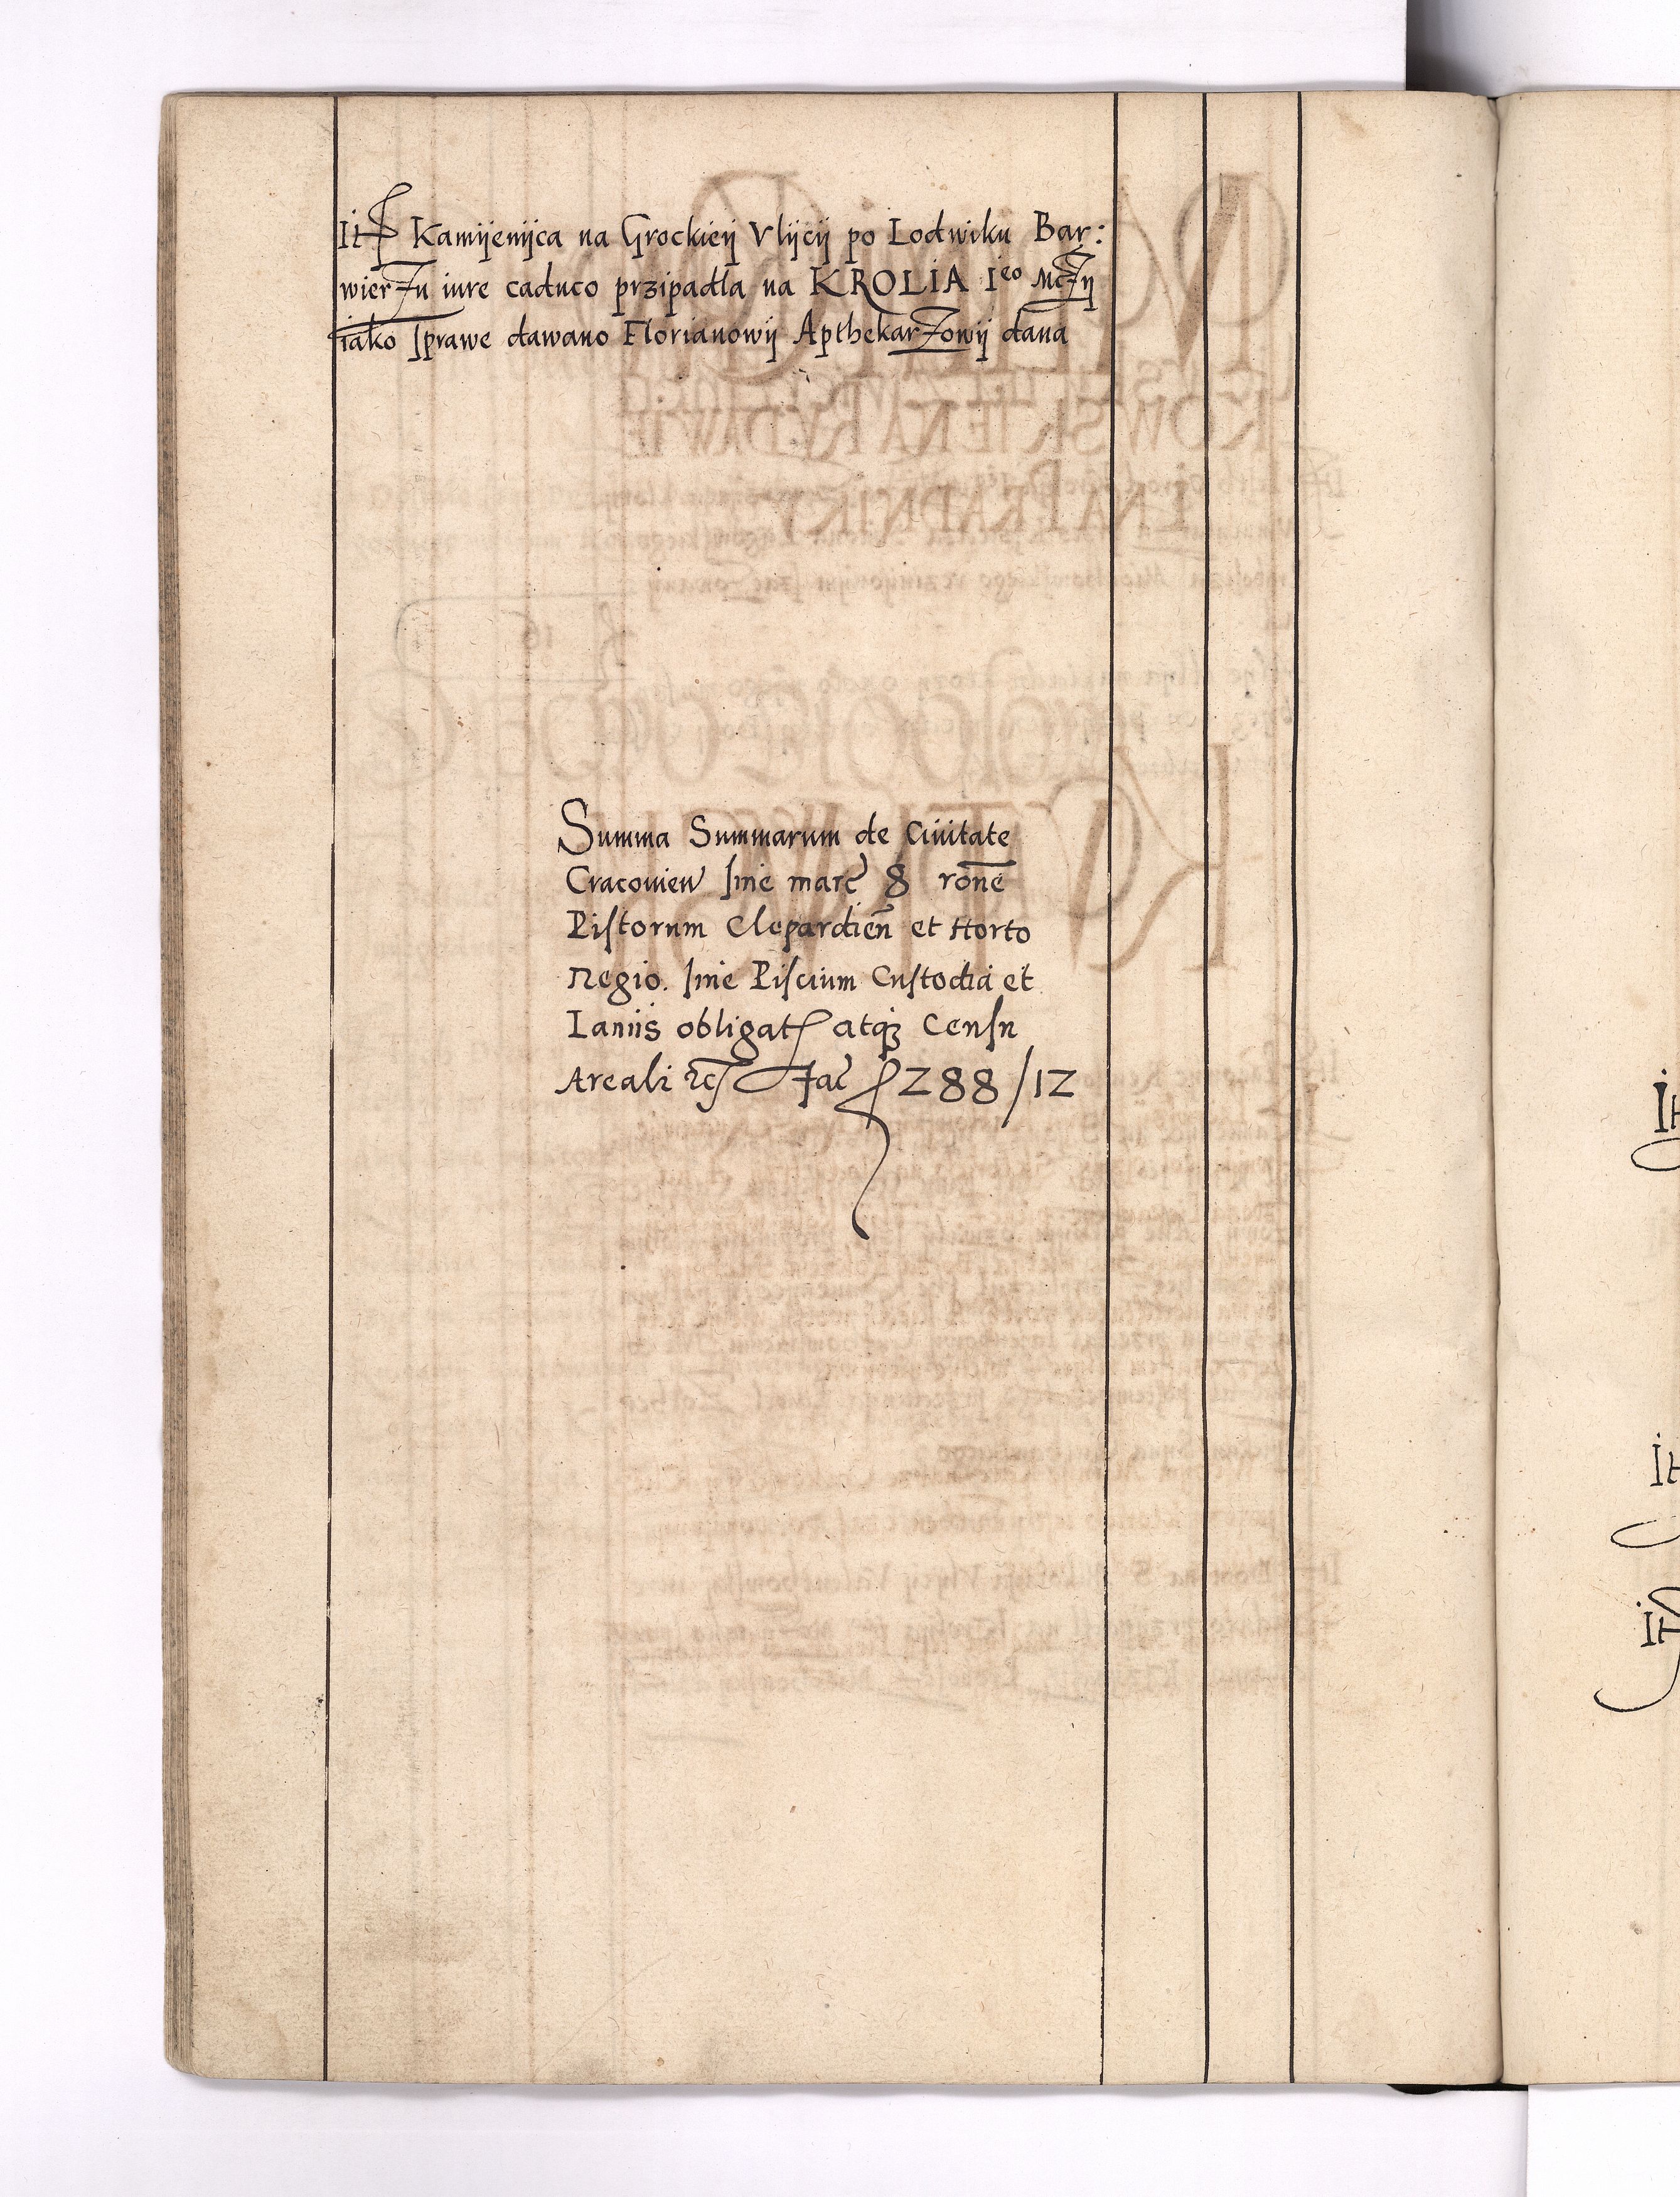 It Kamijenijca na Grockieij Vlijcij po Lodwiku Bar:
wierzu iure caduco przipadla na KROLIA Ieo Mczij
iako sprawe dawano Florianowij Apthekarzowij dana
Summa Summarum de Ciuitate
Cracouien sine marc 8 rone
Pistorum Clepardien et Horto
Regio. sine Piscium Custodia et
Ianiis obligat atq3 Censu
Areali fac 288/12